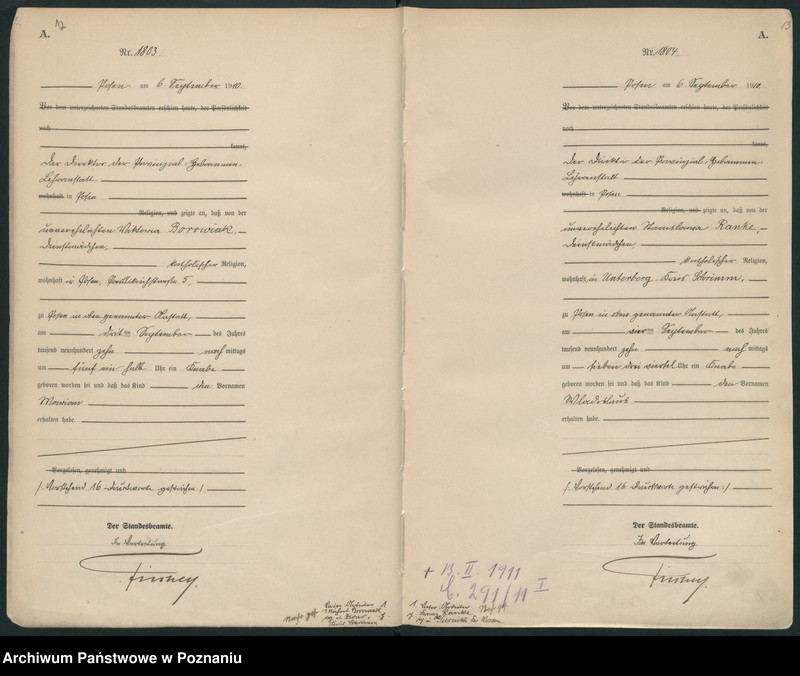 A.
12
Nr. 1803
Posen am 6 September 1910.
Vor dem unterzeichneten Standesbeamten erschien heute, der Persönlichkeit
nach
kannt,
der Direktor der Provinzial-Hebammen-
Lehranstalt
wohnhaft in Posen
Religion, und zeigte an, daß von der
unverehelichten Viktoria Borowiak,
Dienstmädchen,
katholischer Religion,
wohnhaft in Posen, 5,
zu Posen in oben genannter Anstalt,
am drei ten September des Jahres
tausend neunhundert zehn nach mittags
um fünf ein halb Uhr ein Knabe
geboren worden sei und daß das Kind den Vornamen
Maryian
erhalten habe.
Vorgelesen, genehmigt und
(: Vorstehend 16 Druckworte gestrichen :)
Der Standesbeamte.
In Vertretung
A.
13
Nr. 1804
Posen am 6 September 1910.
Vor dem unterzeichneten Standesbeamten erschien heute, der Persönlichkeit
nach
kannt,
der Direktor der Provinzial-Hebammen-
Lehranstalt
wohnhaft in Posen
Religion, und zeigte an, daß von der
unverehelichten Stanislawa Ranke,
Dienstmädchen
katholischer Religion,
wohnhaft in Unterberg Kreis Schrimm,
zu Posen in oben genannter Anstalt,
am vier ten September des Jahres
tausend neunhundert zehn nach mittags
um sieben drei viertel Uhr ein Knabe
geboren worden sei und daß das Kind den Vornamen
Wladislaus
erhalten habe.
Vorgelesen, genehmigt und
(: Vorstehend 16 Druckworte gestrichen :)
Der Standesbeamte.
In Vertretung
+ 13. II. 1911
291/11 I
Archiwum Państwowe w Poznaniu